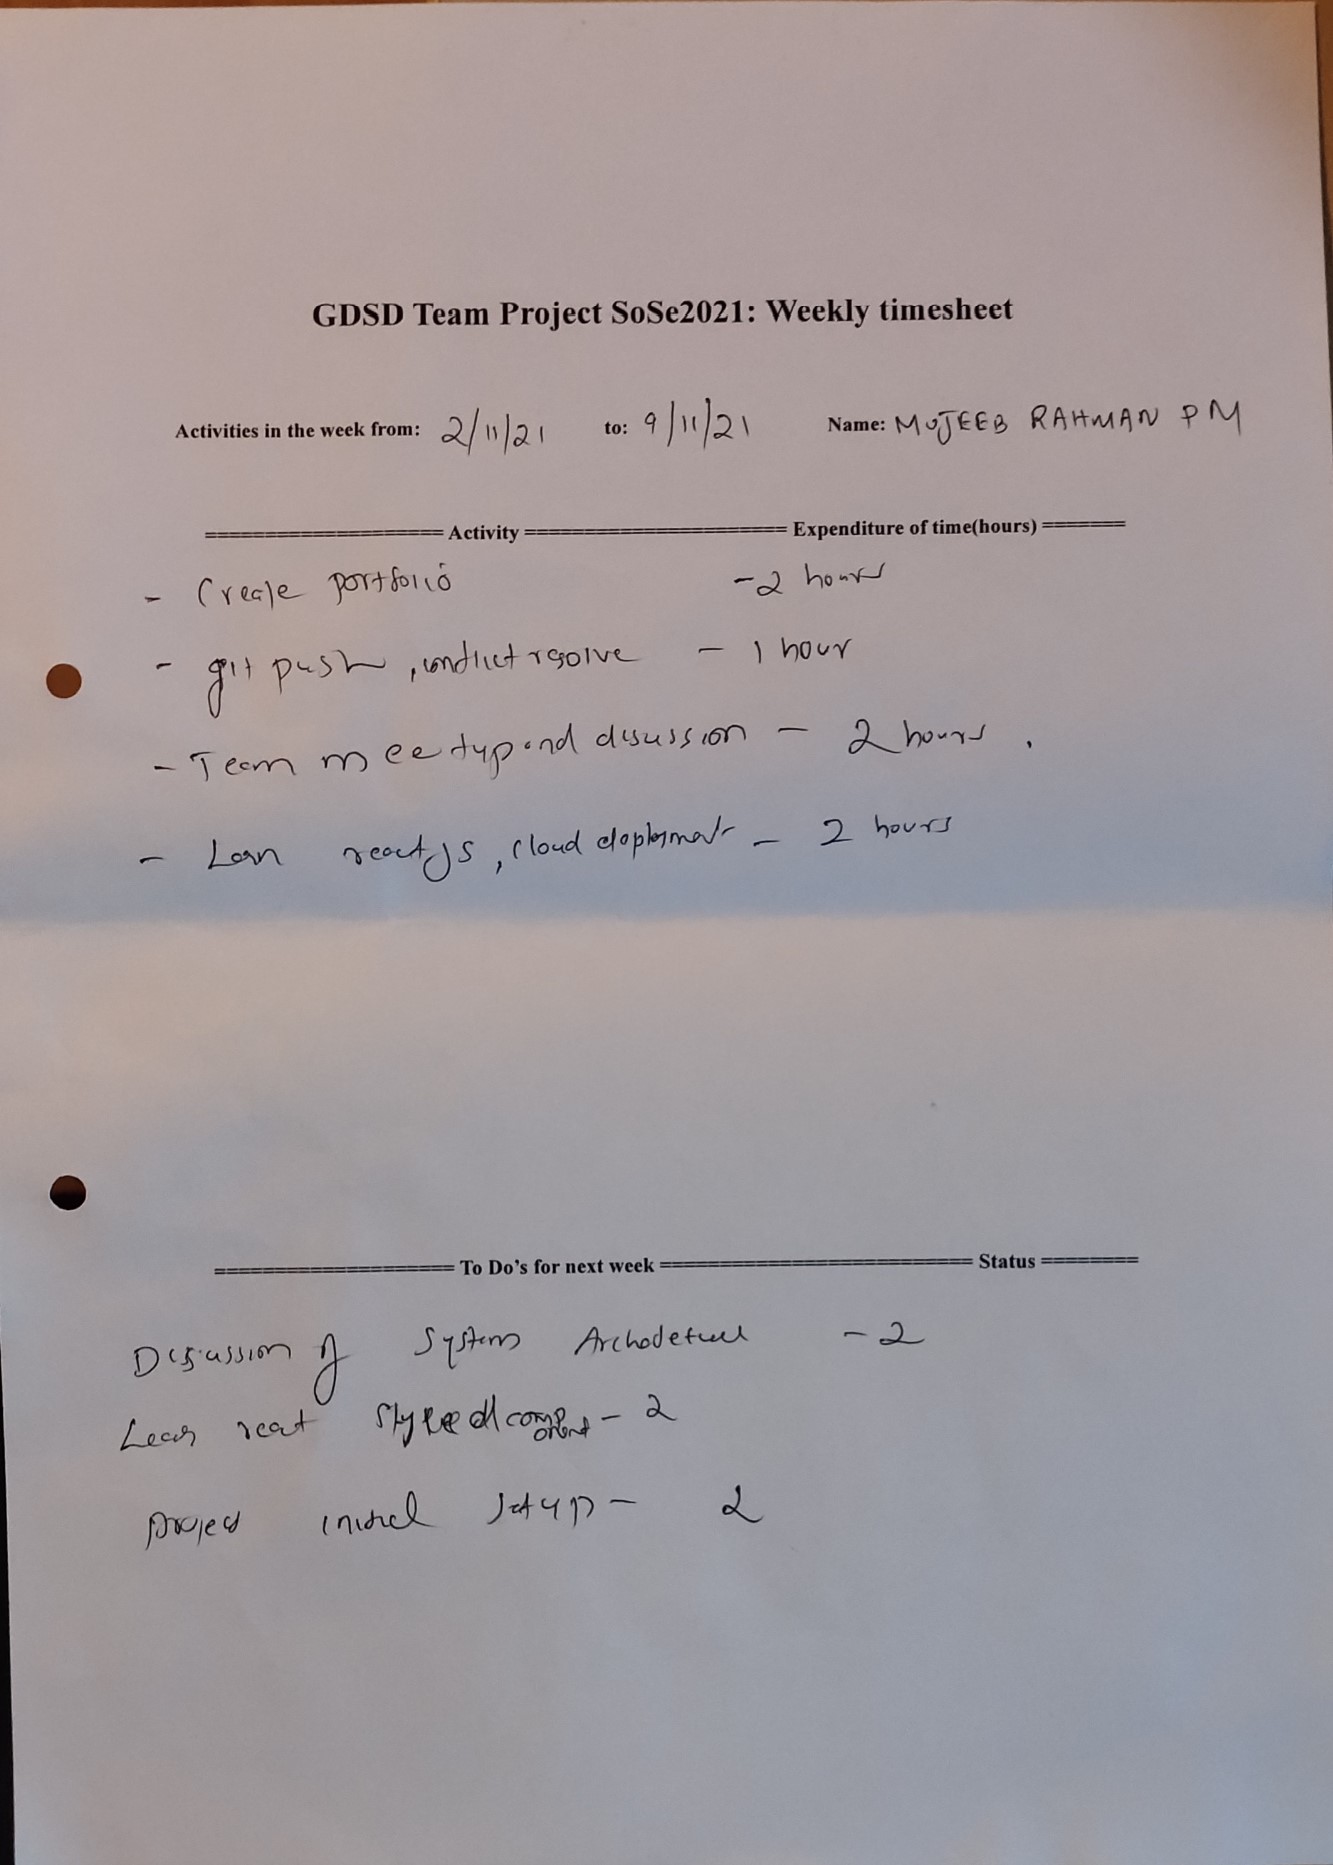 GDSD Team Project SoSe2021: Weekly timesheet
Activities in the week from: 2/11/21 to: 9/11/21 Name: MUJEEB RAHMAN PM
==================== Activity ====================== Expenditure of time(hours) =======
- Create portfolio - 2 hours
- git push, conflict rsolve - 1 hour
- Team meetup and disussion - 2 hours.
- Learn react JS, cloud - 2 hours
==================== To Do's for next week ========================== Status ========
Disussion of System - 2
Learn react styled component - 2
project initial setup - 2